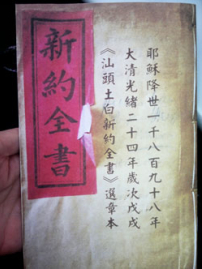 耶穌降世一千八百九十八年
大清光緒二十四年歲次戊戌
《汕頭土白新約全書》選章本
新約全書